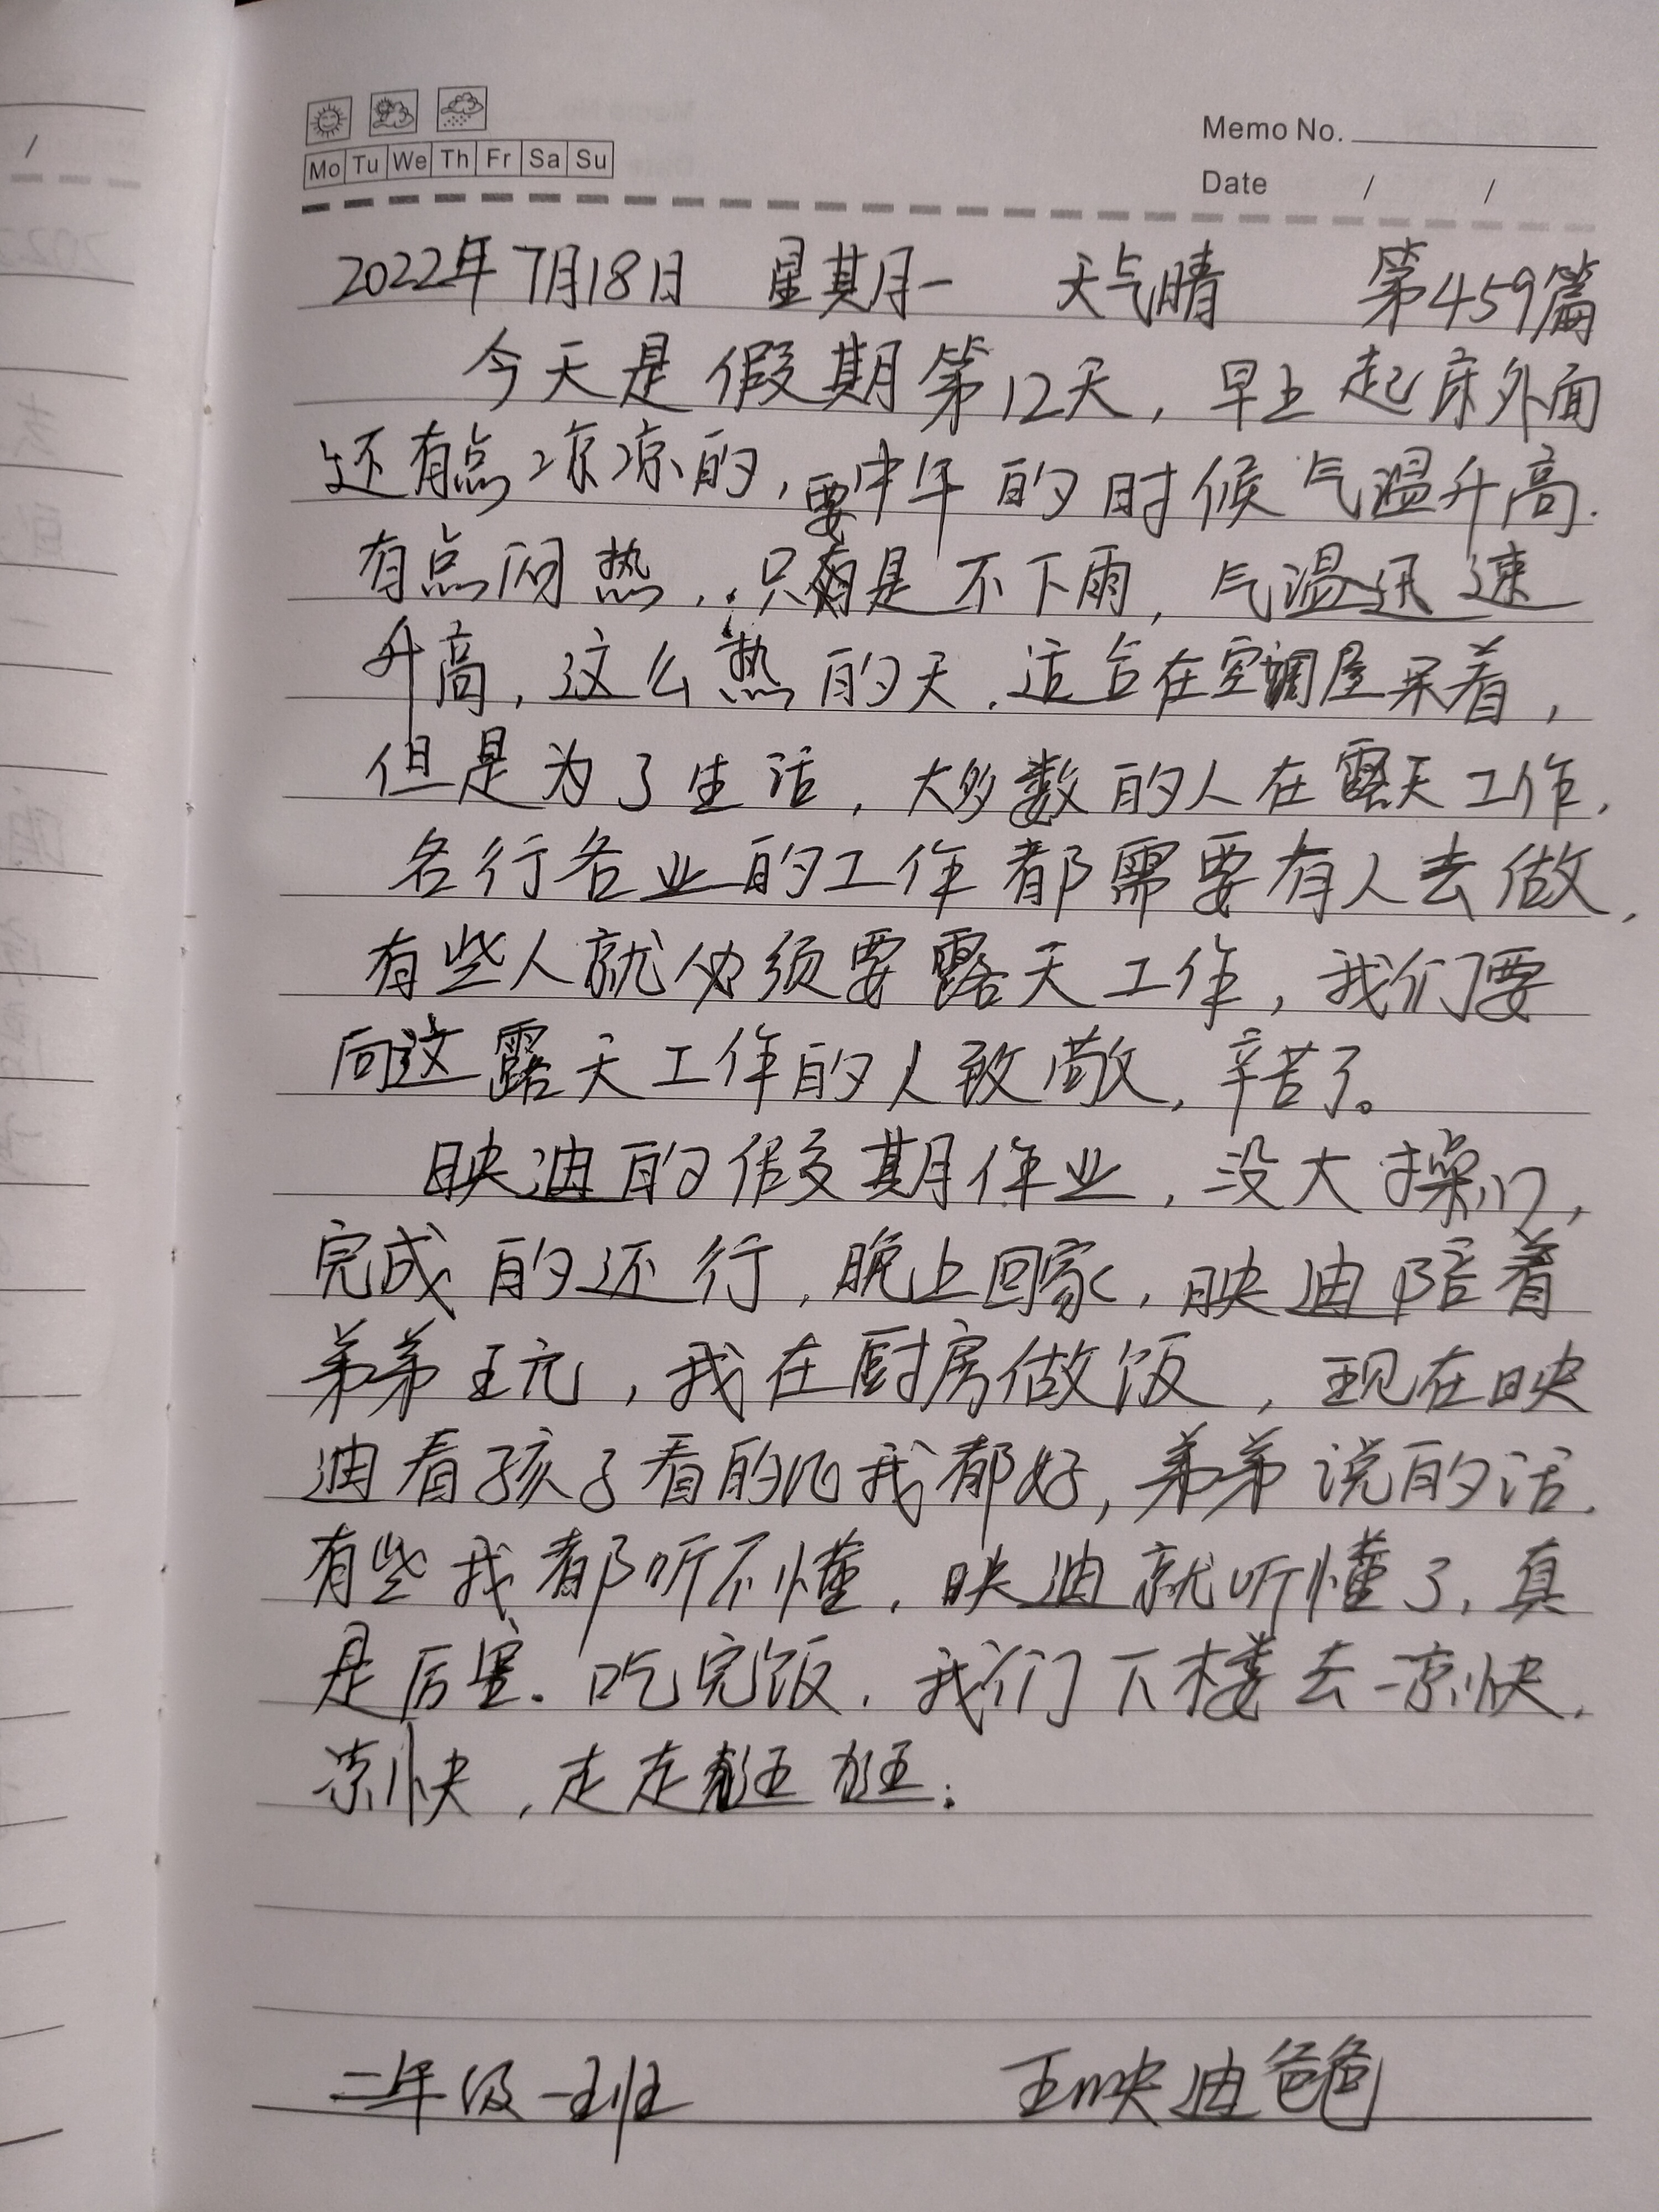 Memo No.
Mo Tu We Th Fr Sa Su
Date / /
2022年7月18日 星其月一 天气晴 第459篇
今天是假期第12天，早上起床外面
还有点凉凉的，要中午的时候气温升高.
有点闷热，.只是不下雨，气温迅速
升高，这么热的天.适合在空调屋呆着，
但是为了生活，大多数的人在露天工作，
各行各业的工作都需要有人去做，
有些人就必须要露天工作，我们要
向这露天工作的人致敬，辛苦了。
映迪的假期作业，没大操心，
完成的还行，晚上回家，映迪陪着
弟弟玩，我在厨房做饭，现在映
迪看孩子看的比我都好，弟弟说的话.
有些我都听不懂，映迪就听懂了，真
是厉害.吃完饭，我们下楼去凉快，
凉快，走走
二年级一班 王映迪爸爸